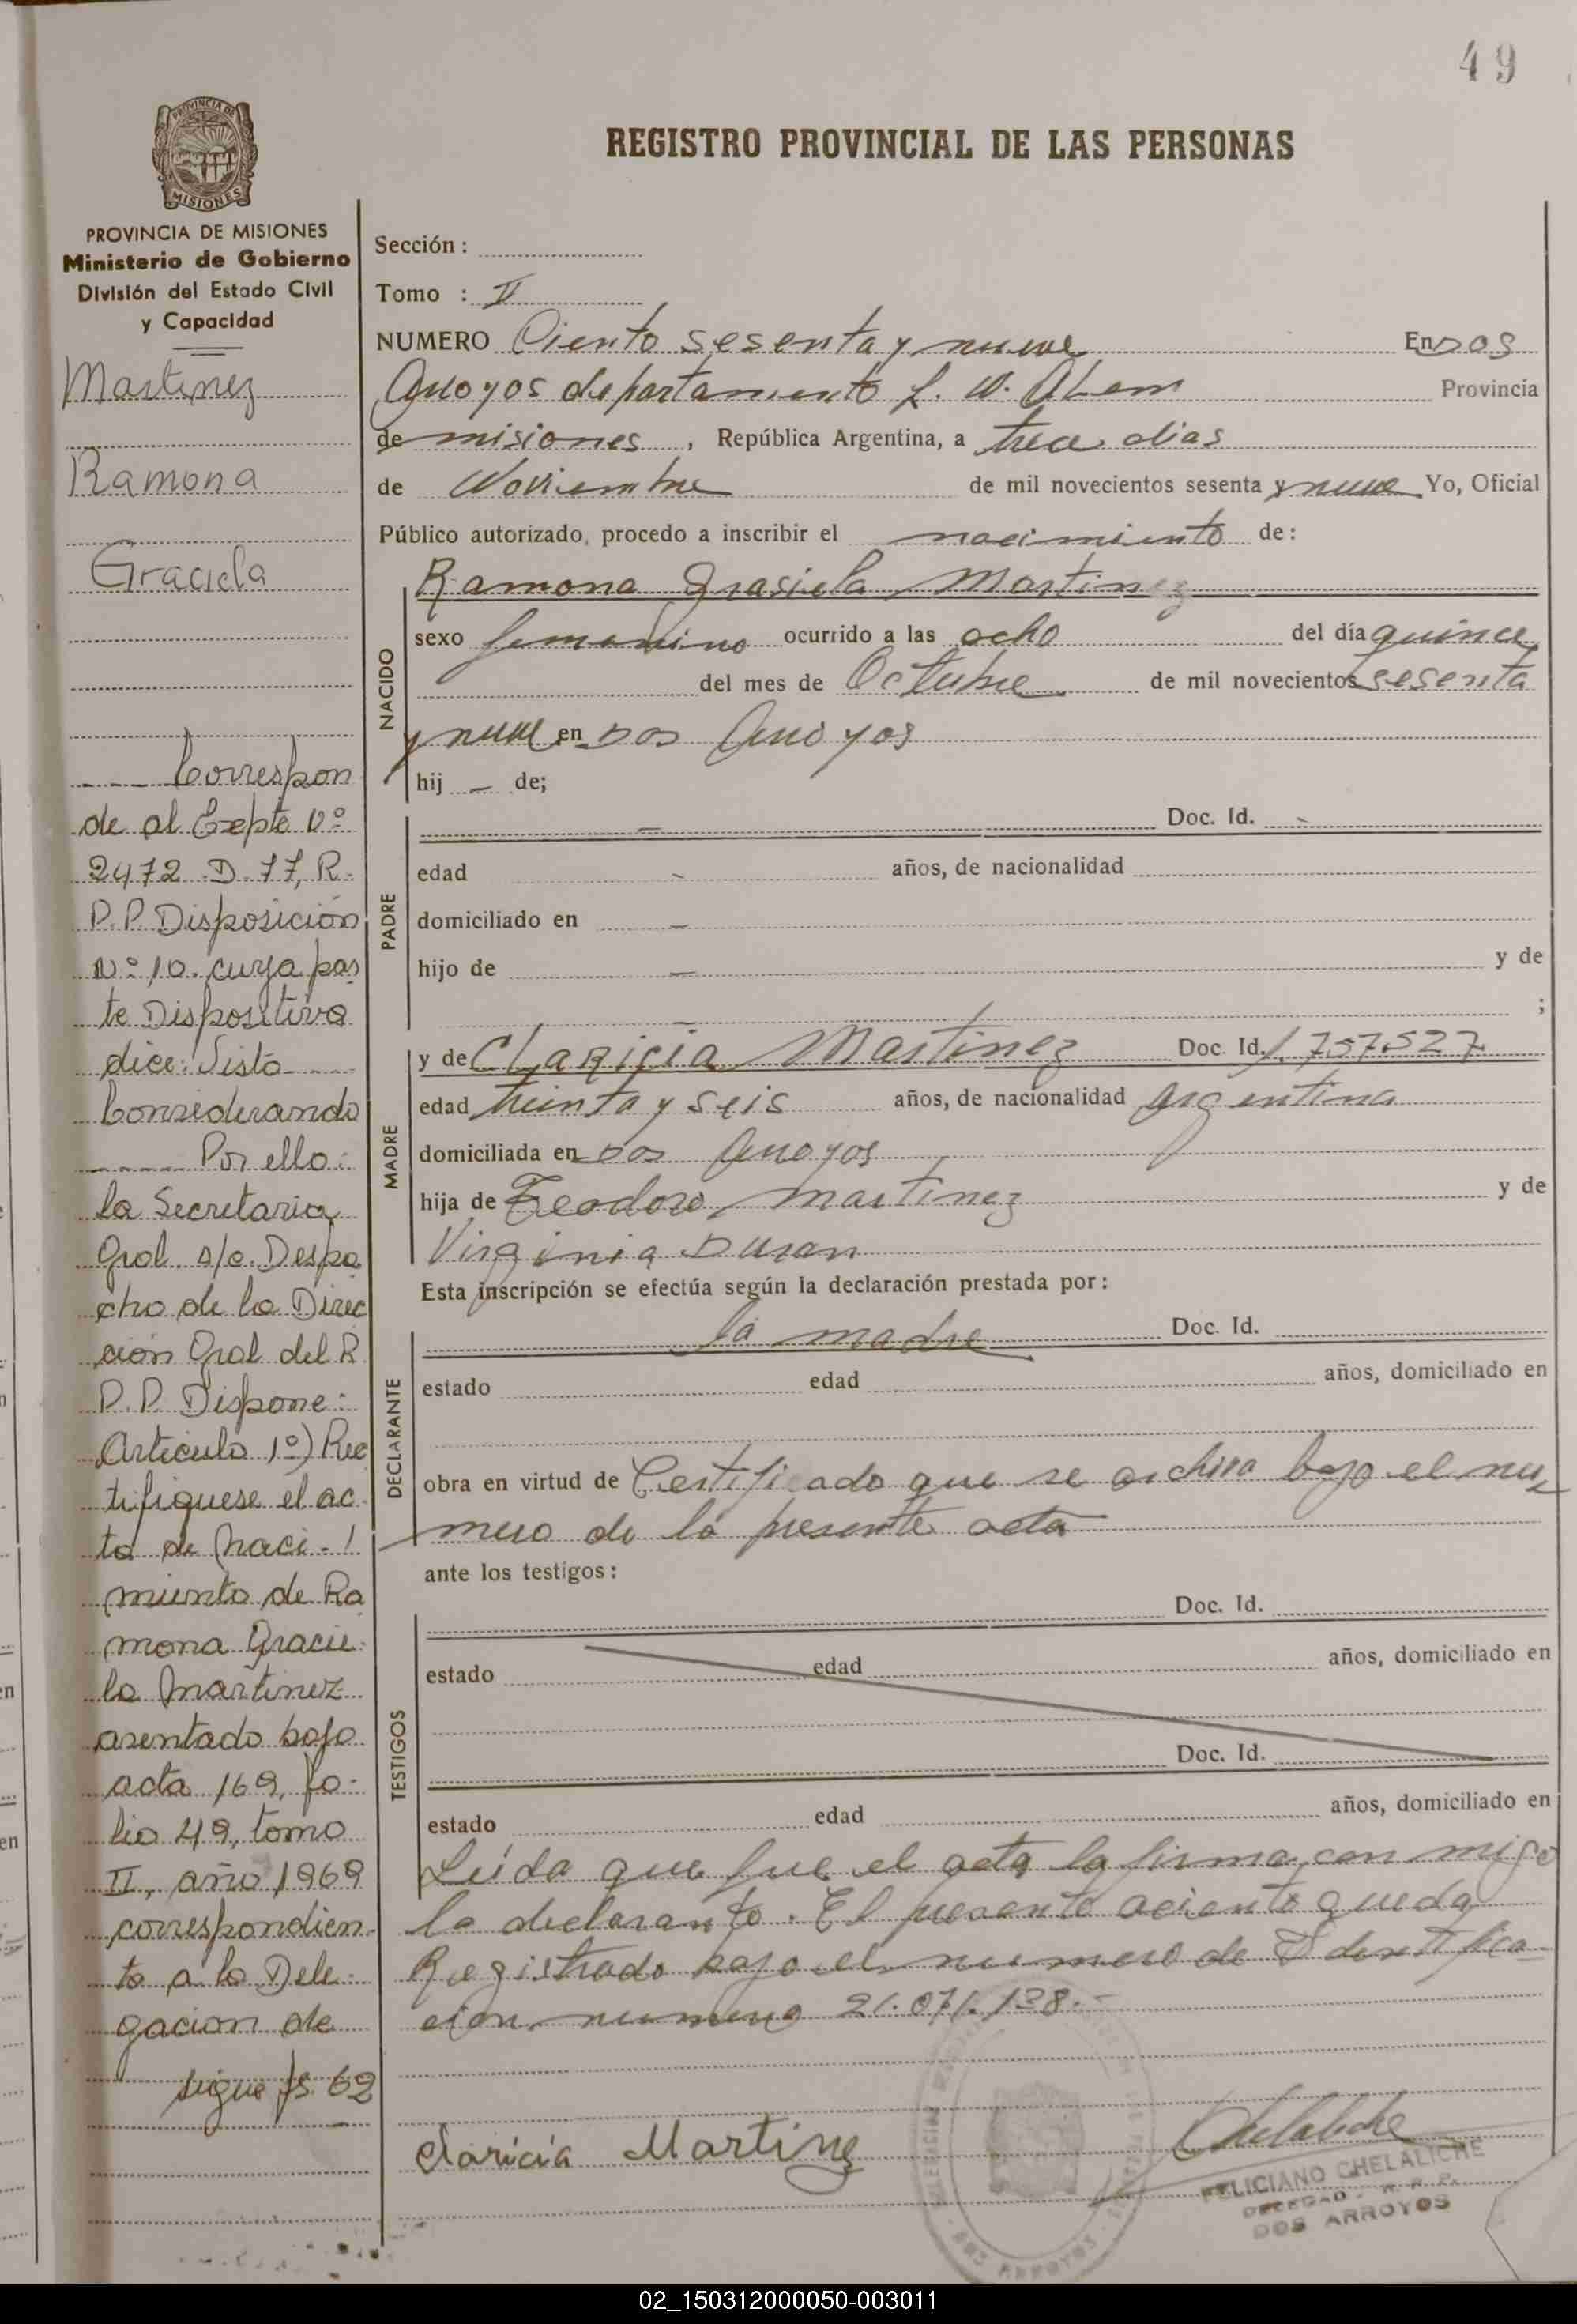 49
PROVINCIA DE MISIONES
REGISTRO PROVINCIAL DE LAS PERSONAS
PROVINCIA DE MISIONES
Ministerio de Gobierno
División del Estado Civil
y Capacidad
Martinez
Ramona
Graciela
Correspon
de al Expte Nº
2472 D. 77, R.
P.P. Disposición
Nº 10. cuya par
te Dispositiva
dice: Visto
Considerando
Por ello:
la Secretaria
Gral. a/c. Despa
cho de la Direc
ción Gral del R
P.P. Dispone:
Articulo 1º) Rec
tifiquese el ac
ta de naci-
miento de Ra
mona Gracie
la Martinez
asentado bajo
acta 169, fo-
lio 49, tomo
II, año 1969
correspondien
te a la Dele
gacion de
sigue fs. 62
Sección :
Tomo : II
NUMERO Ciento sesenta y nueve En DOS
Arroyos departamento L. N. Alem Provincia
de misiones , República Argentina, a trece dias
de Noviembre de mil novecientos sesenta y nueve Yo, Oficial
Público autorizado, procedo a inscribir el nacimiento de:
NACIDO
Ramona Grasiela Martinez
sexo femenino ocurrido a las ocho del día quince
del mes de Octubre de mil novecientos sesenta
y nueve en Dos Arroyos
hij – de;
PADRE
– Doc. Id. -
edad - años, de nacionalidad
domiciliado en –
hijo de – y de
– ;
MADRE
y de Claricia Martinez Doc. Id. 1.757.527
edad treinta y seis años, de nacionalidad argentina
domiciliada en Dos Arroyos
hija de Teodoro Martinez y de
Virginia Duran
Esta inscripción se efectúa según la declaración prestada por:
DECLARANTE
la madre Doc. Id.
estado edad años, domiciliado en
obra en virtud de Certificado que se archiva bajo el nu
mero de la presente acta
ante los testigos:
TESTIGOS
Doc. Id.
estado edad años, domiciliado en
Doc. Id.
estado edad años, domiciliado en
Leida que fue el acta la firma con migo
la declarante. El presente aciento queda
Registrado bajo el numero de Identifica-
cion numero 21.071.138.-
Claricia Martinez
Chelaliche
FELICIANO CHELALICHE
DELEGAD. R. P. P.
DOS ARROYOS
DOS ARROYOS
02_150312000050-003011